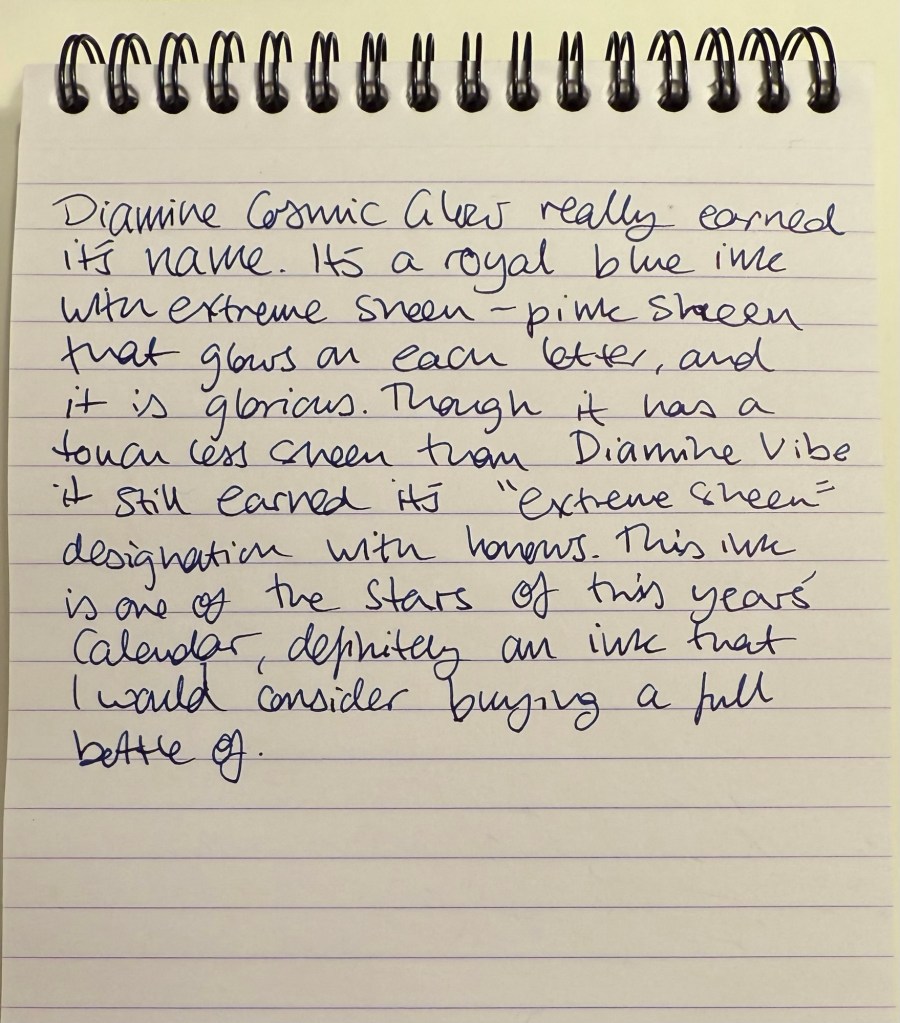 Diamine Cosmic Glow really earned
its name. Its a royal blue ink
with extreme sheen - pink sheen
that glows on each letter, and
it is glorious. Though it has a
touch less sheen than Diamine Vibe
it still earned its "extreme sheen"
designation with honours. This ink
is one of the stars of this years'
Calendar, definitely an ink that
I would consider buying a full
bottle of.